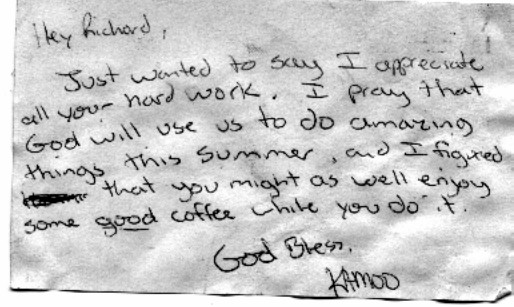 Hey Richard,
Just wanted to say I appreciate
all your hard work. I pray that
God will use us to do amazing
things this summer, and I figured
that you might as well enjoy
some good coffee while you do it.
God Bless,
KAMOO